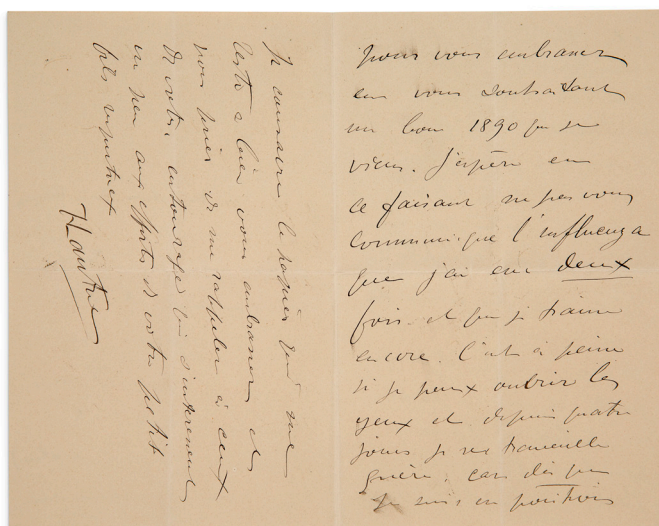 pour vous embrasser
en vous souhaitant
un bon 1890 que je
viens. J'espère en
ce faisant ne pas vous
communiquer l'influenza
que j'ai eu deux
fois et que je traine
encore. C'est à peine
si je peux ouvrir les
yeux et depuis quatre
jours je ne travaille
guère, car dès que
je suis en position
Je consacre le papier qui me
reste à bien vous embrasser et
vous prier de me rappeler à ceux
de votre entourage qui s'intéressent
un peu aux efforts de votre petit
très respectueux
HLautrec